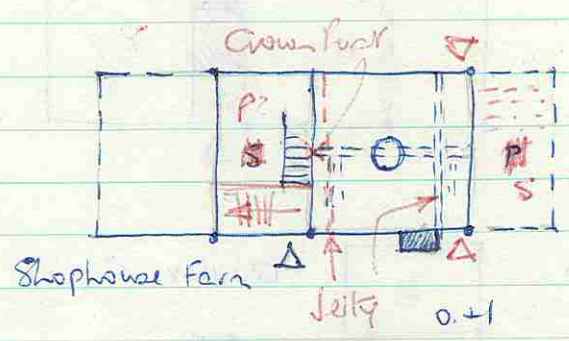 Crown Post
P?
S
P
S
Shophouse Farm
Jetty
0.+1